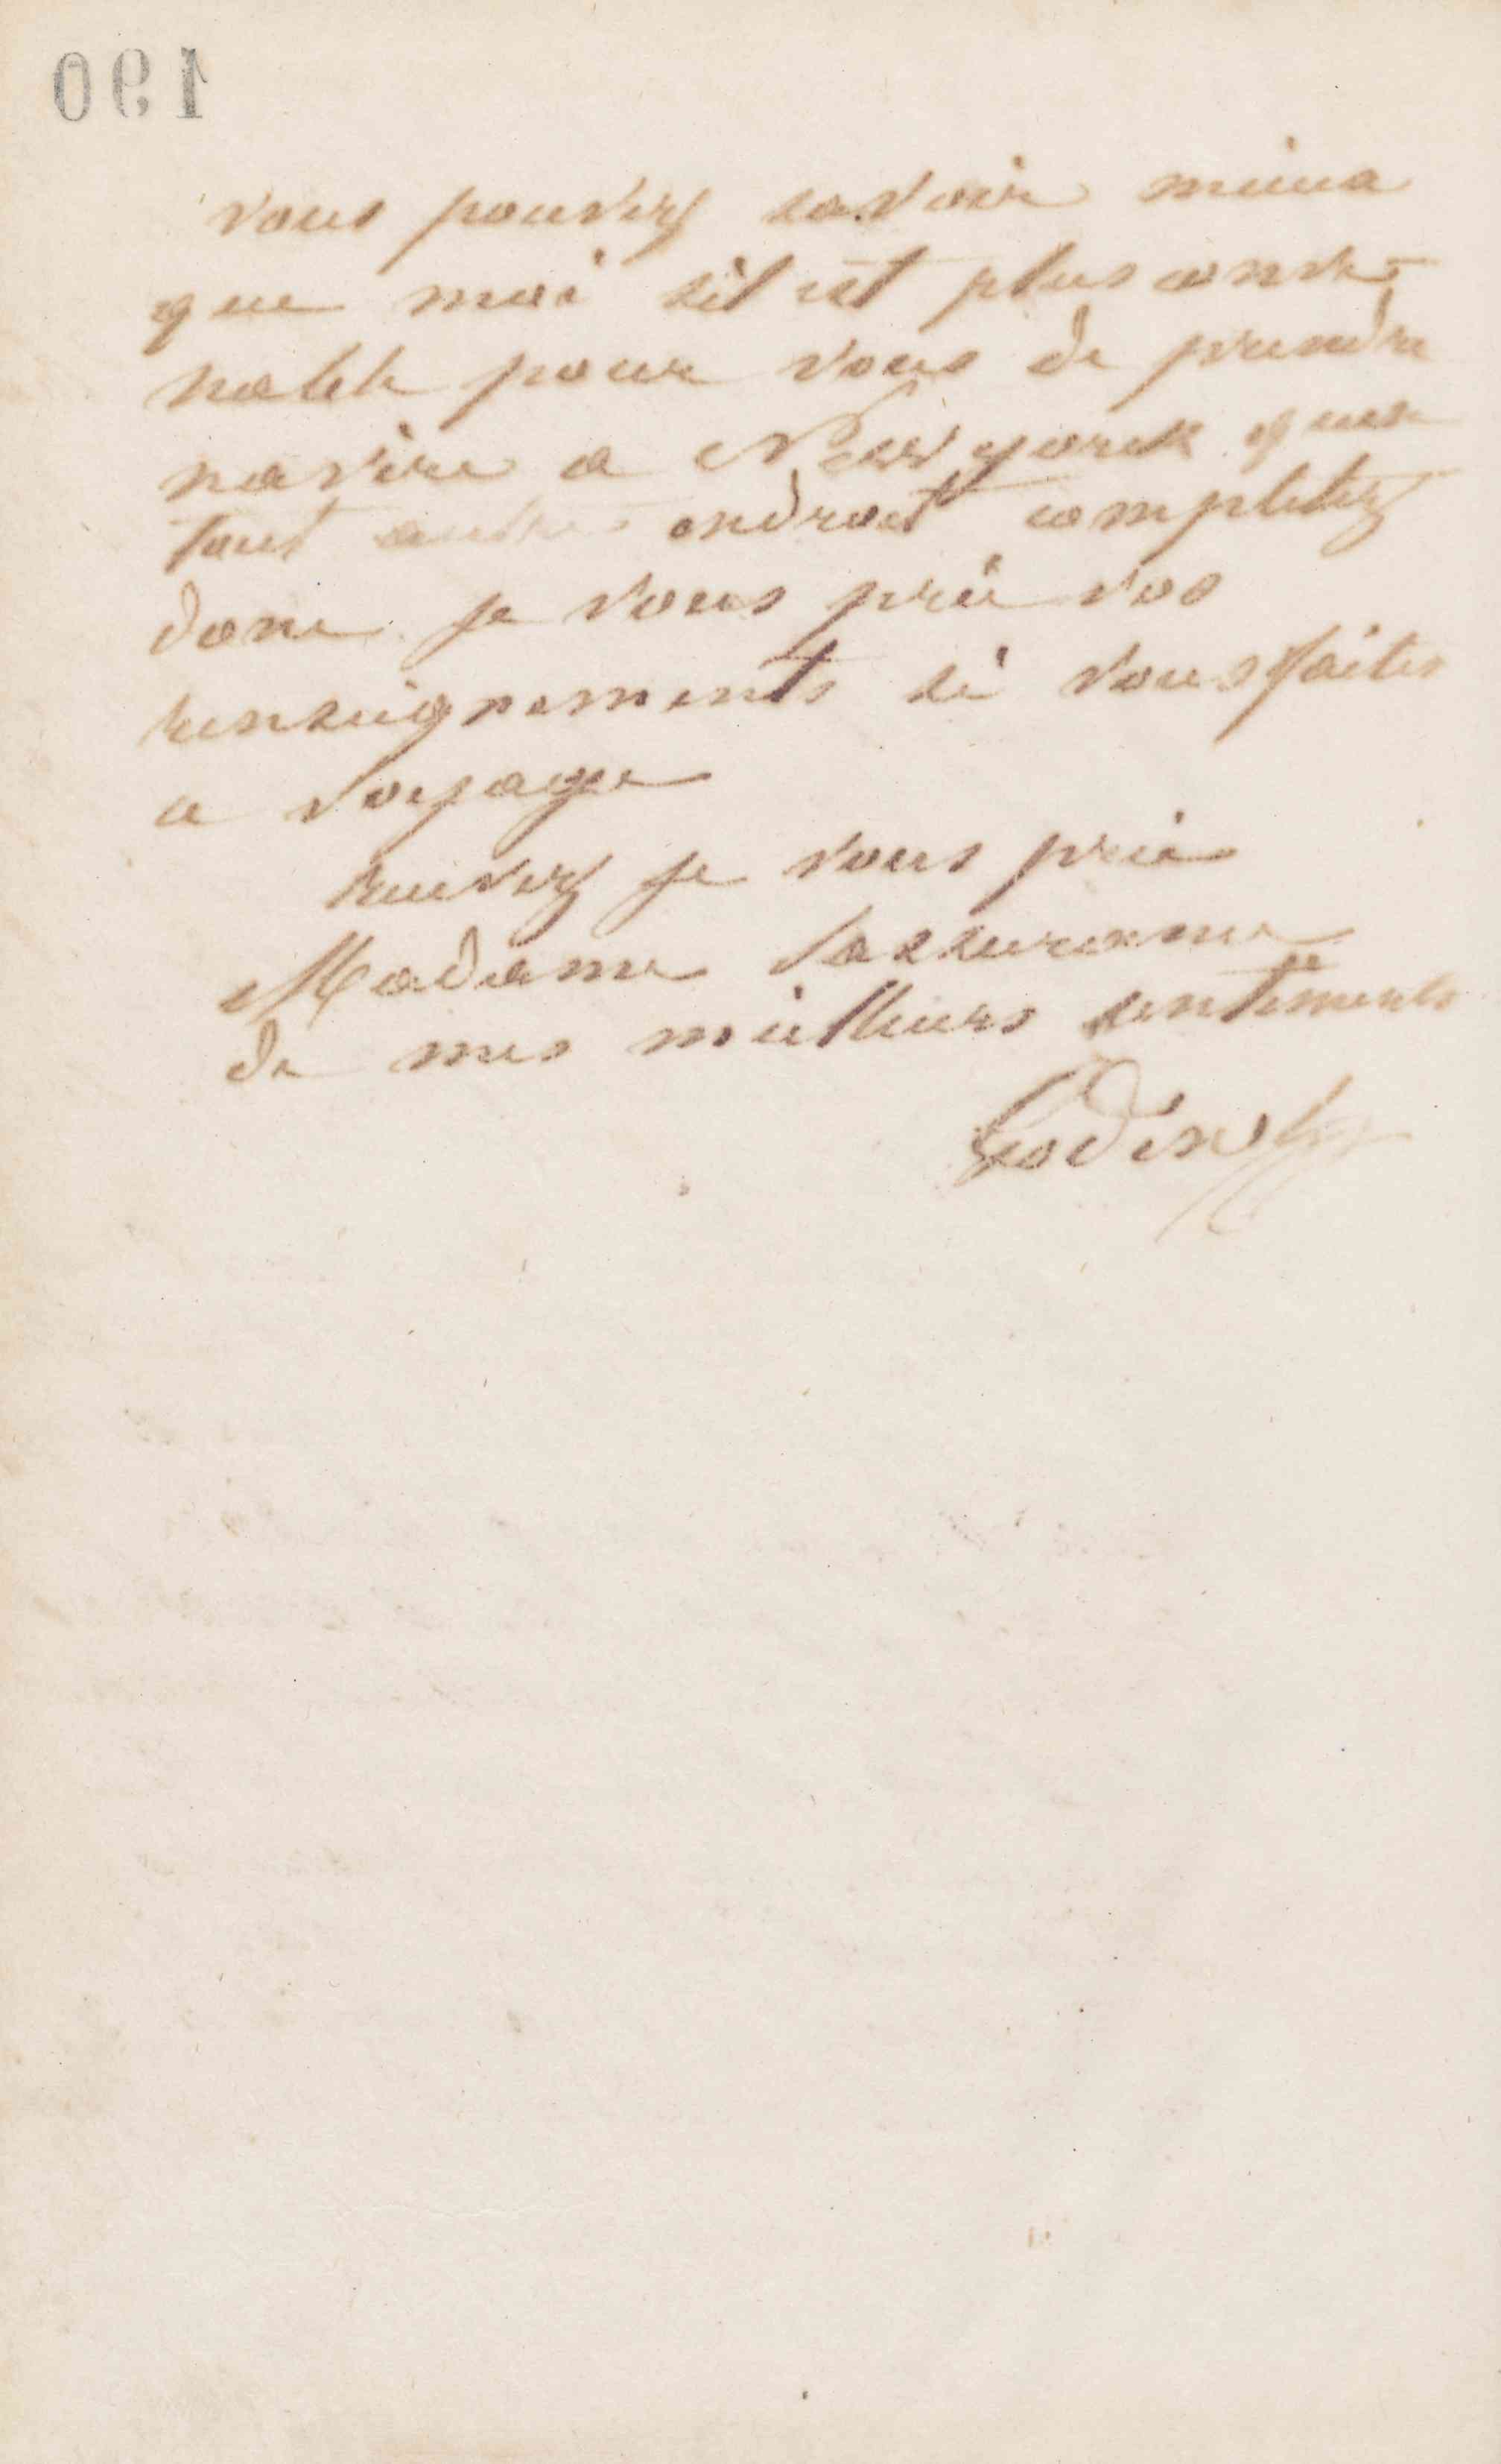 190
vous pouvez savoir mieux
que moi s'il est plus conve-
nable pour vous de prendre
navire a New york qu'en
tout autre endroit completez
donc je vous prie vos
renseignements si vous faites
ce voyage
Recevez je vous prie
Madame l'assurance
de mes meilleurs sentiments
Godin